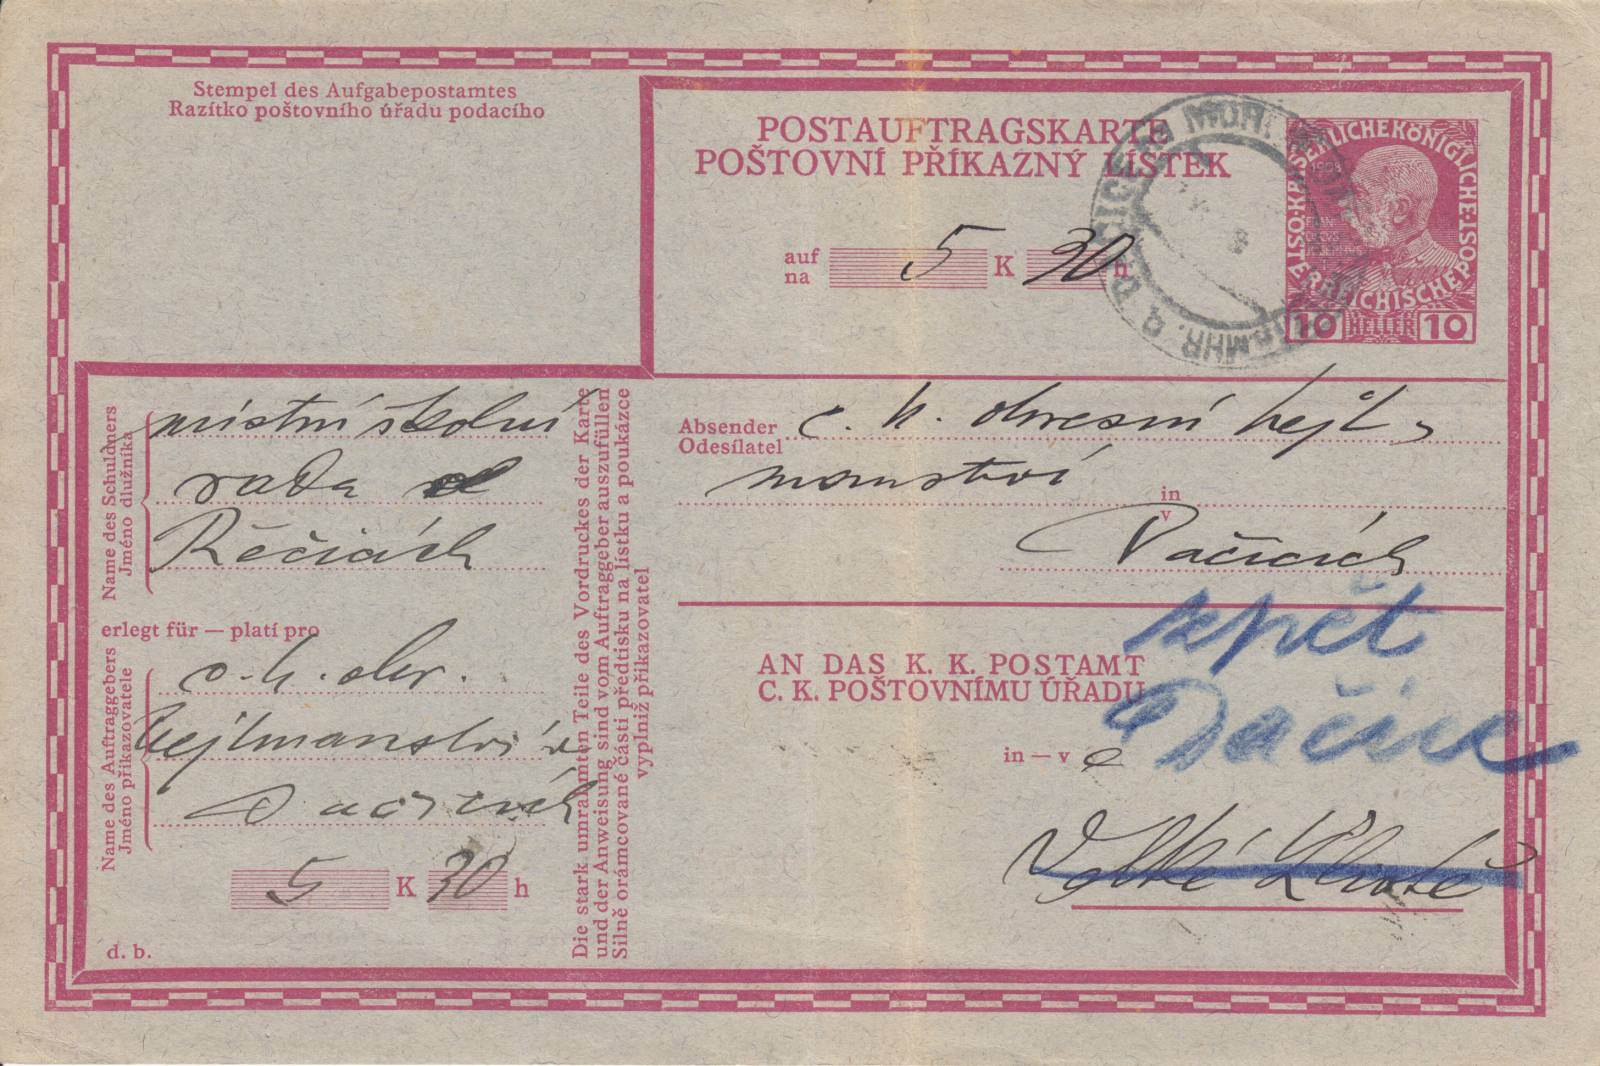 Stempel des Aufgabepostamtes
Razítko poštovního úřadu podacího
POSTAUFTRAGSKARTE
POŠTOVNÍ PŘÍKAZNÝ LÍSTEK
auf
na
5 K 30 h
ÖSTERREICHISCHE POST KAISERLICHE KÖNIGLICHE
1908
10 HELLER 10
Name des Schuldners
Jméno dlužníka
místní školní
rada
erlegt für — platí pro
Name des Auftraggebers
Jméno příkazovatele
c. k. okr.
hejtmanství v
Dačicích
5 K 30 h
d. b.
Die stark umrahmten Teile des Vordruckes der Karte
und der Anweisung sind vom Auftraggeber auszufüllen
Silně orámcované části předtisku na lístku a poukázce
vyplniž příkazovatel
Absender
Odesílatel
c. k. okresní hejt-
manství
in
v
Dačicích
AN DAS K. K. POSTAMT
C. K. POŠTOVNÍMU ÚŘADU
zpět
Dačice
in — v
Velké Lhotě